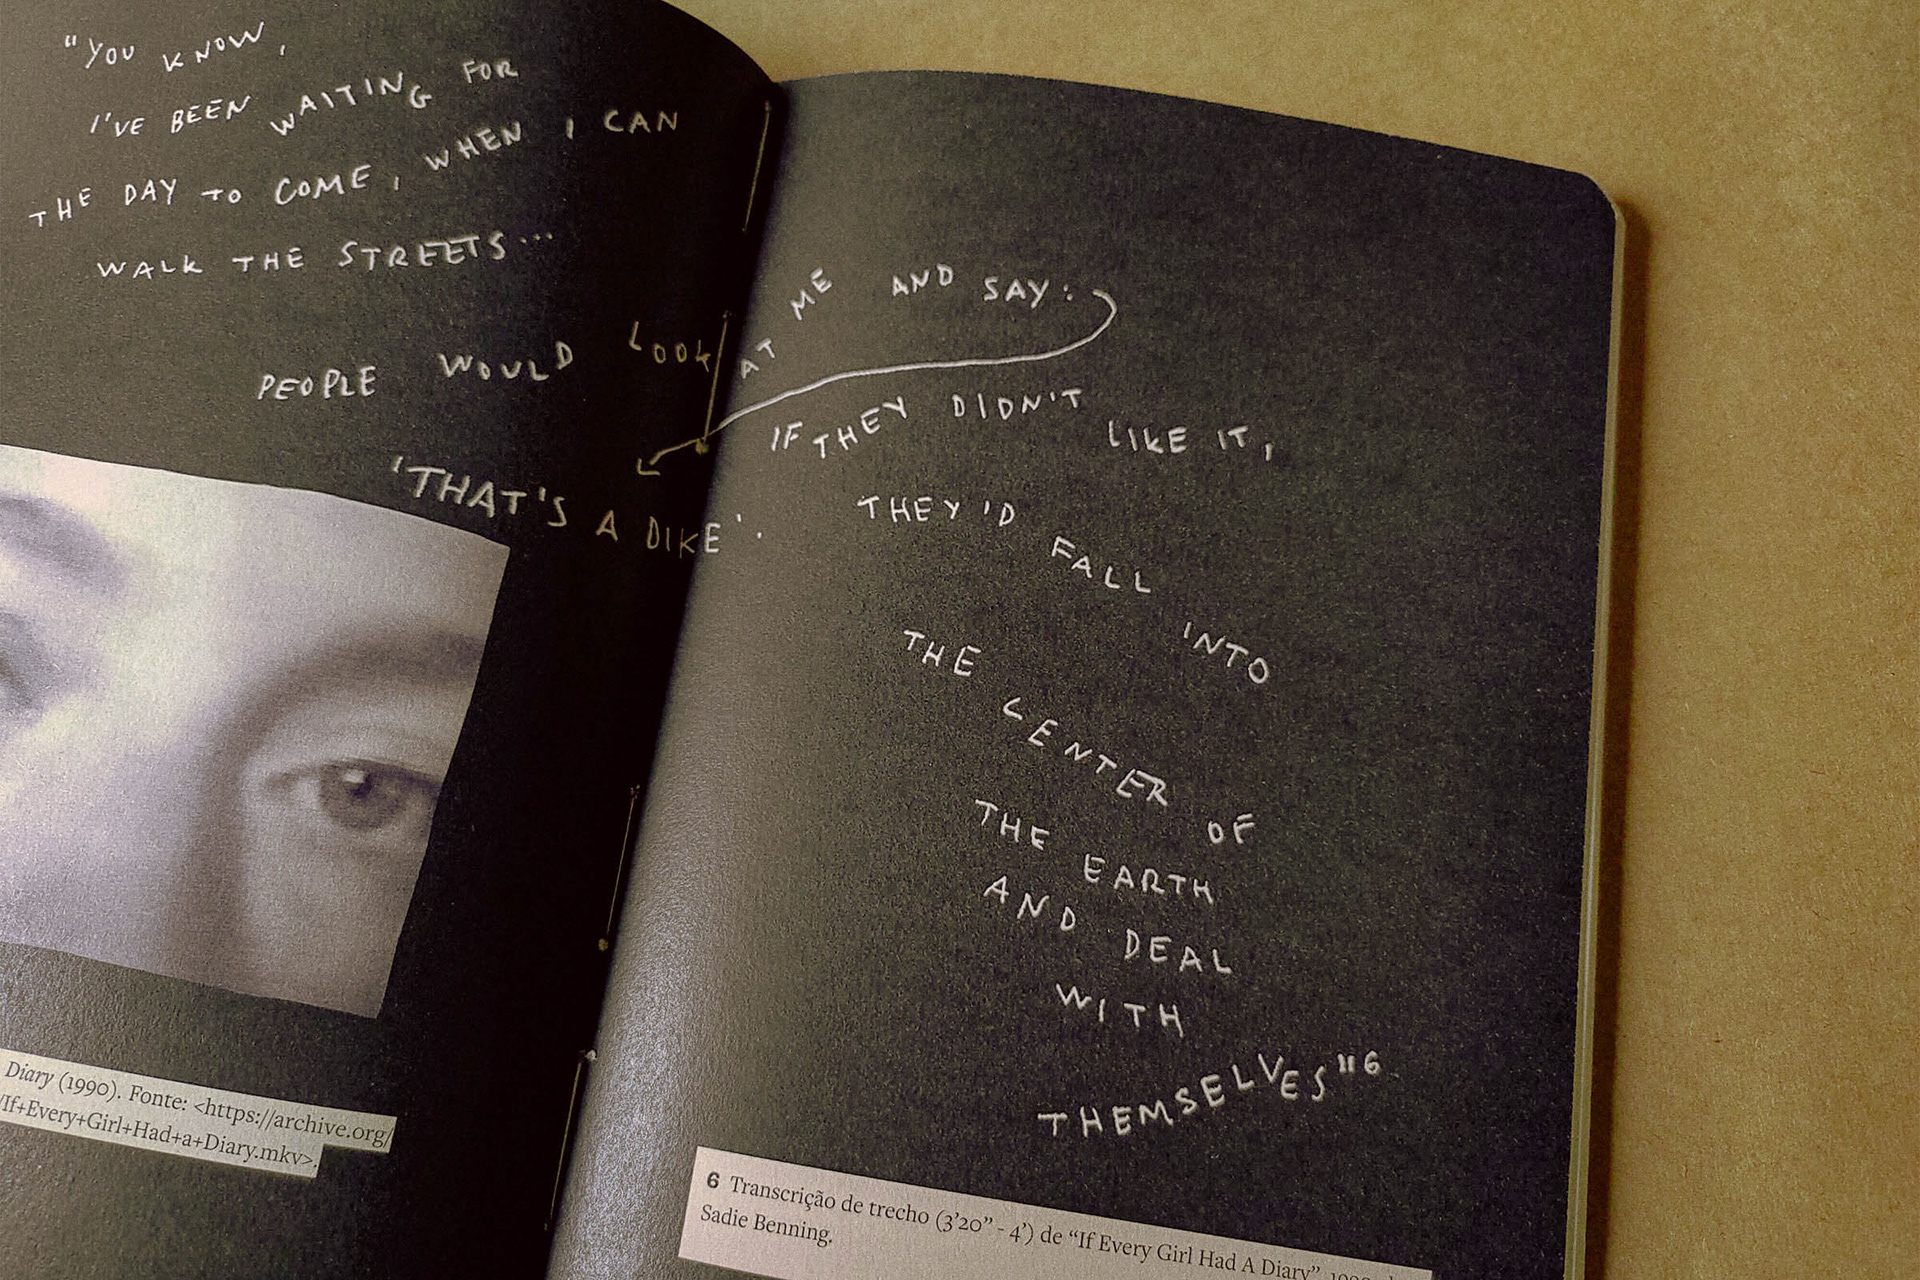 "YOU KNOW,
I'VE BEEN WAITING FOR
THE DAY TO COME, WHEN I CAN
WALK THE STREETS...
PEOPLE WOULD LOOK AT ME AND SAY:
'THAT'S A DIKE'.
IF THEY DIDN'T LIKE IT,
THEY'D FALL INTO
THE CENTER OF
THE EARTH
AND DEAL
WITH
THEMSELVES"6
Diary (1990). Fonte: <https://archive.org/
/If+Every+Girl+Had+a+Diary.mkv>.
6 Transcrição de trecho (3'20" - 4') de "If Every Girl Had A Diary"
Sadie Benning.